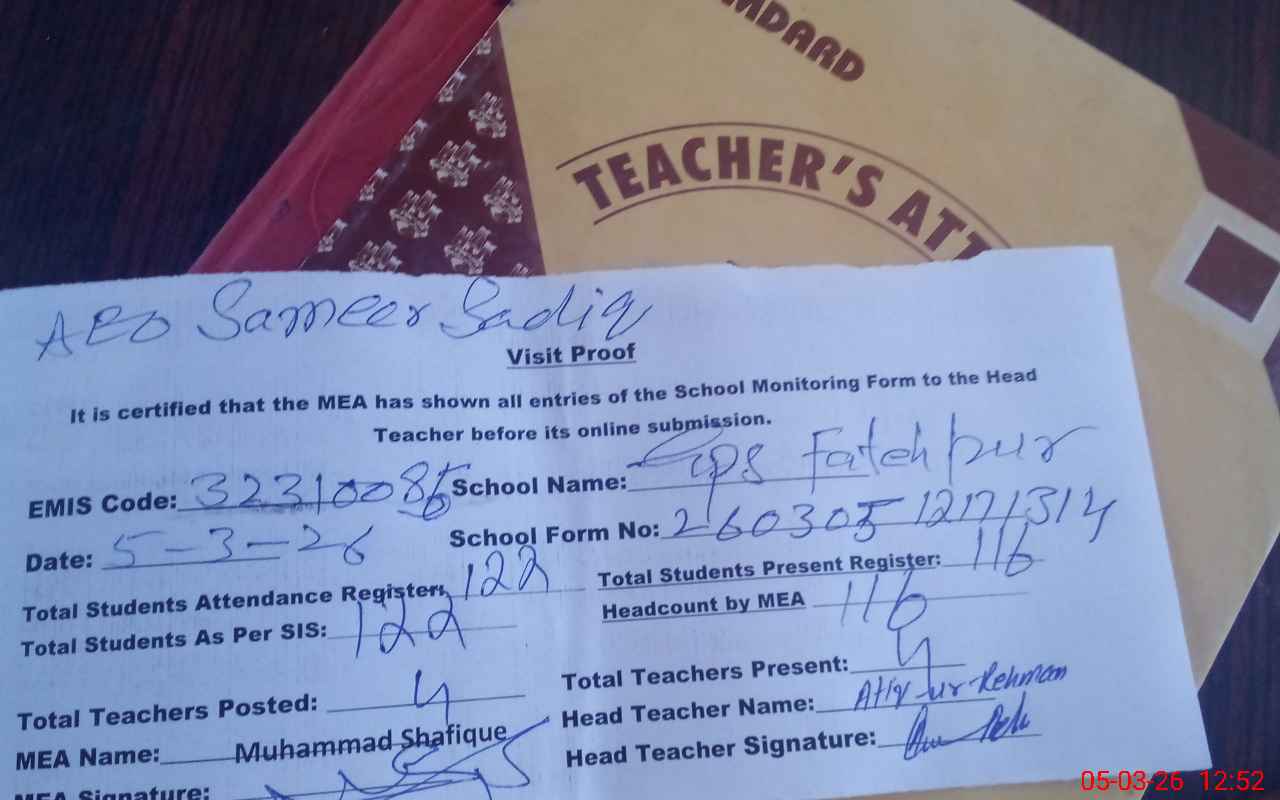 MDARD
TEACHER'S ATT
AEO Sameer Sadiq
Visit Proof
It is certified that the MEA has shown all entries of the School Monitoring Form to the Head
Teacher before its online submission.
EMIS Code: School Name: Gps Fatehpur
Date: 5-3-26 School Form No: 260305
Total Students Attendance Register: 122 Total Students Present Register: 116
Total Students As Per SIS: 122 Headcount by MEA 116
Total Teachers Posted: 4 Total Teachers Present: 4
MEA Name: Muhammad Shafique Head Teacher Name: Atiq-ur-Rehman
MEA Signature: Head Teacher Signature:
05-03-26 12:52